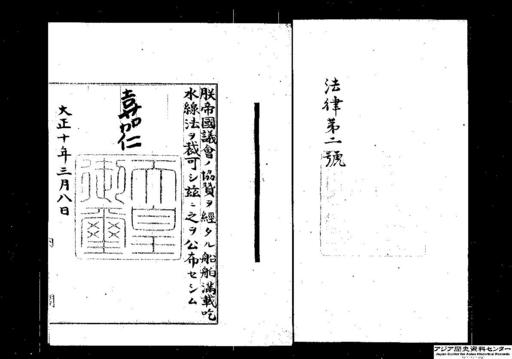 法律第二號
朕帝國議會ノ協贊ヲ經タル船舶滿載吃
水線法ヲ裁可シ玆ニ之ヲ公布セシム
嘉仁
天皇
御璽
大正十年三月八日
アジア歴史資料センター
Japan Center for Asian Historical Records